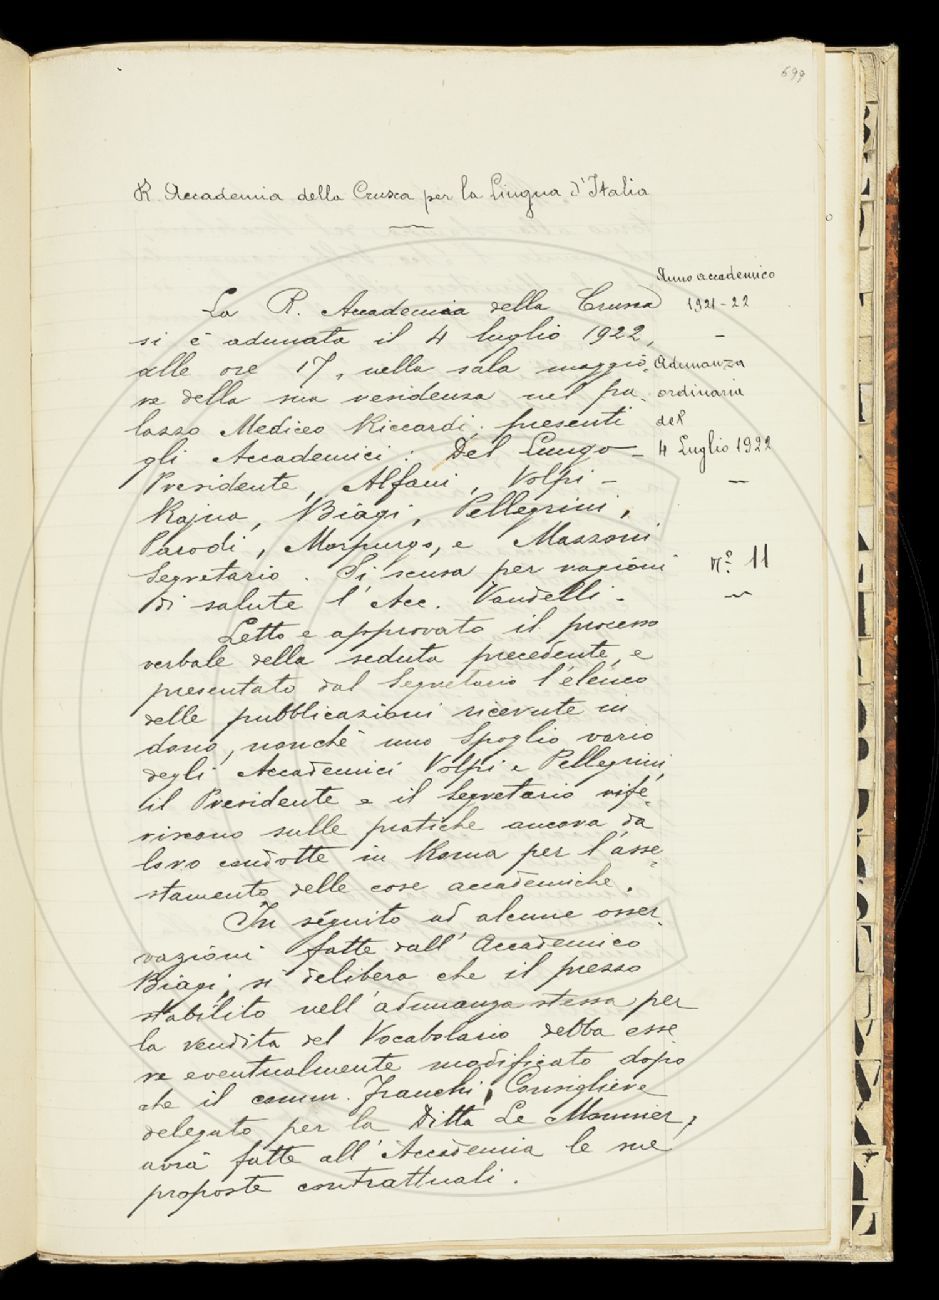 699
R. Accademia della Crusca per la Lingua d'Italia
Anno accademico
1921-22
Adunanza
ordinaria
del
4 Luglio 1922
N.º 11
La R. Accademia della Crusca
si è adunata il 4 luglio 1922,
alle ore 17, nella sala maggio-
re della sua residenza nel pa-
lazzo Mediceo Riccardi; presenti
gli Accademici: Del Lungo -
Presidente, Alfani, Volpi -
Rajna, Biagi, Pellegrini,
Parodi, Morpurgo, e Mazzoni
Segretario. Si scusa per ragioni
di salute l'Acc. Vandelli -
Letto e approvato il processo
verbale della seduta precedente, e
presentato dal Segretario l'elenco
delle pubblicazioni ricevute in
dono, nonchè uno Spoglio vario
degli Accademici Volpi e Pellegrini,
il Presidente e il Segretario rife-
riscono sulle pratiche ancora da
loro condotte in Roma per l'asse-
stamento delle cose accademiche.
In séguito ad alcune osser-
vazioni fatte dall'Accademico
Biagi, si delibera che il prezzo
stabilito nell'adunanza stessa per
la vendita del Vocabolario debba esse
re eventualmente modificato dopo
che il comm. Franchi, Consigliere
delegato per la Ditta Le Monnier,
avrà fatte all'Accademia le sue
proposte contrattuali.